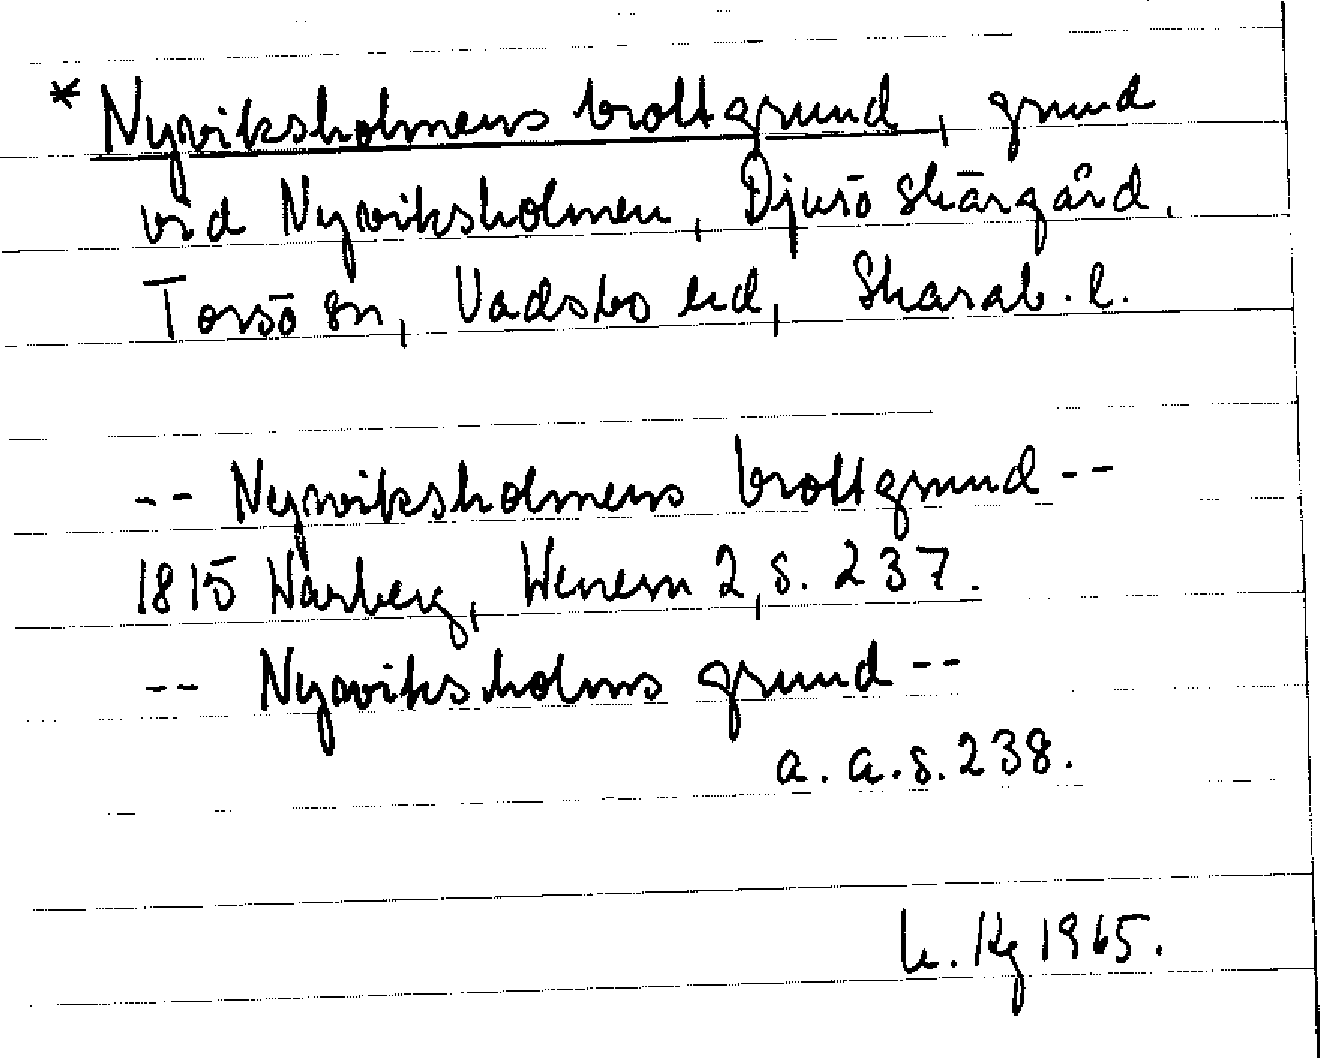 * Nyviksholmens brottgrund, grund
vid Nyviksholmen, Djurö skärgård.
Torsö sn, Vadsbo hd, Skarab. l.
-- Nyviksholmens brottgrund --
1815 Warberg, Wenern 2, s. 237.
-- Nyviksholms grund --
a. a. s. 238.
Kg 1965.